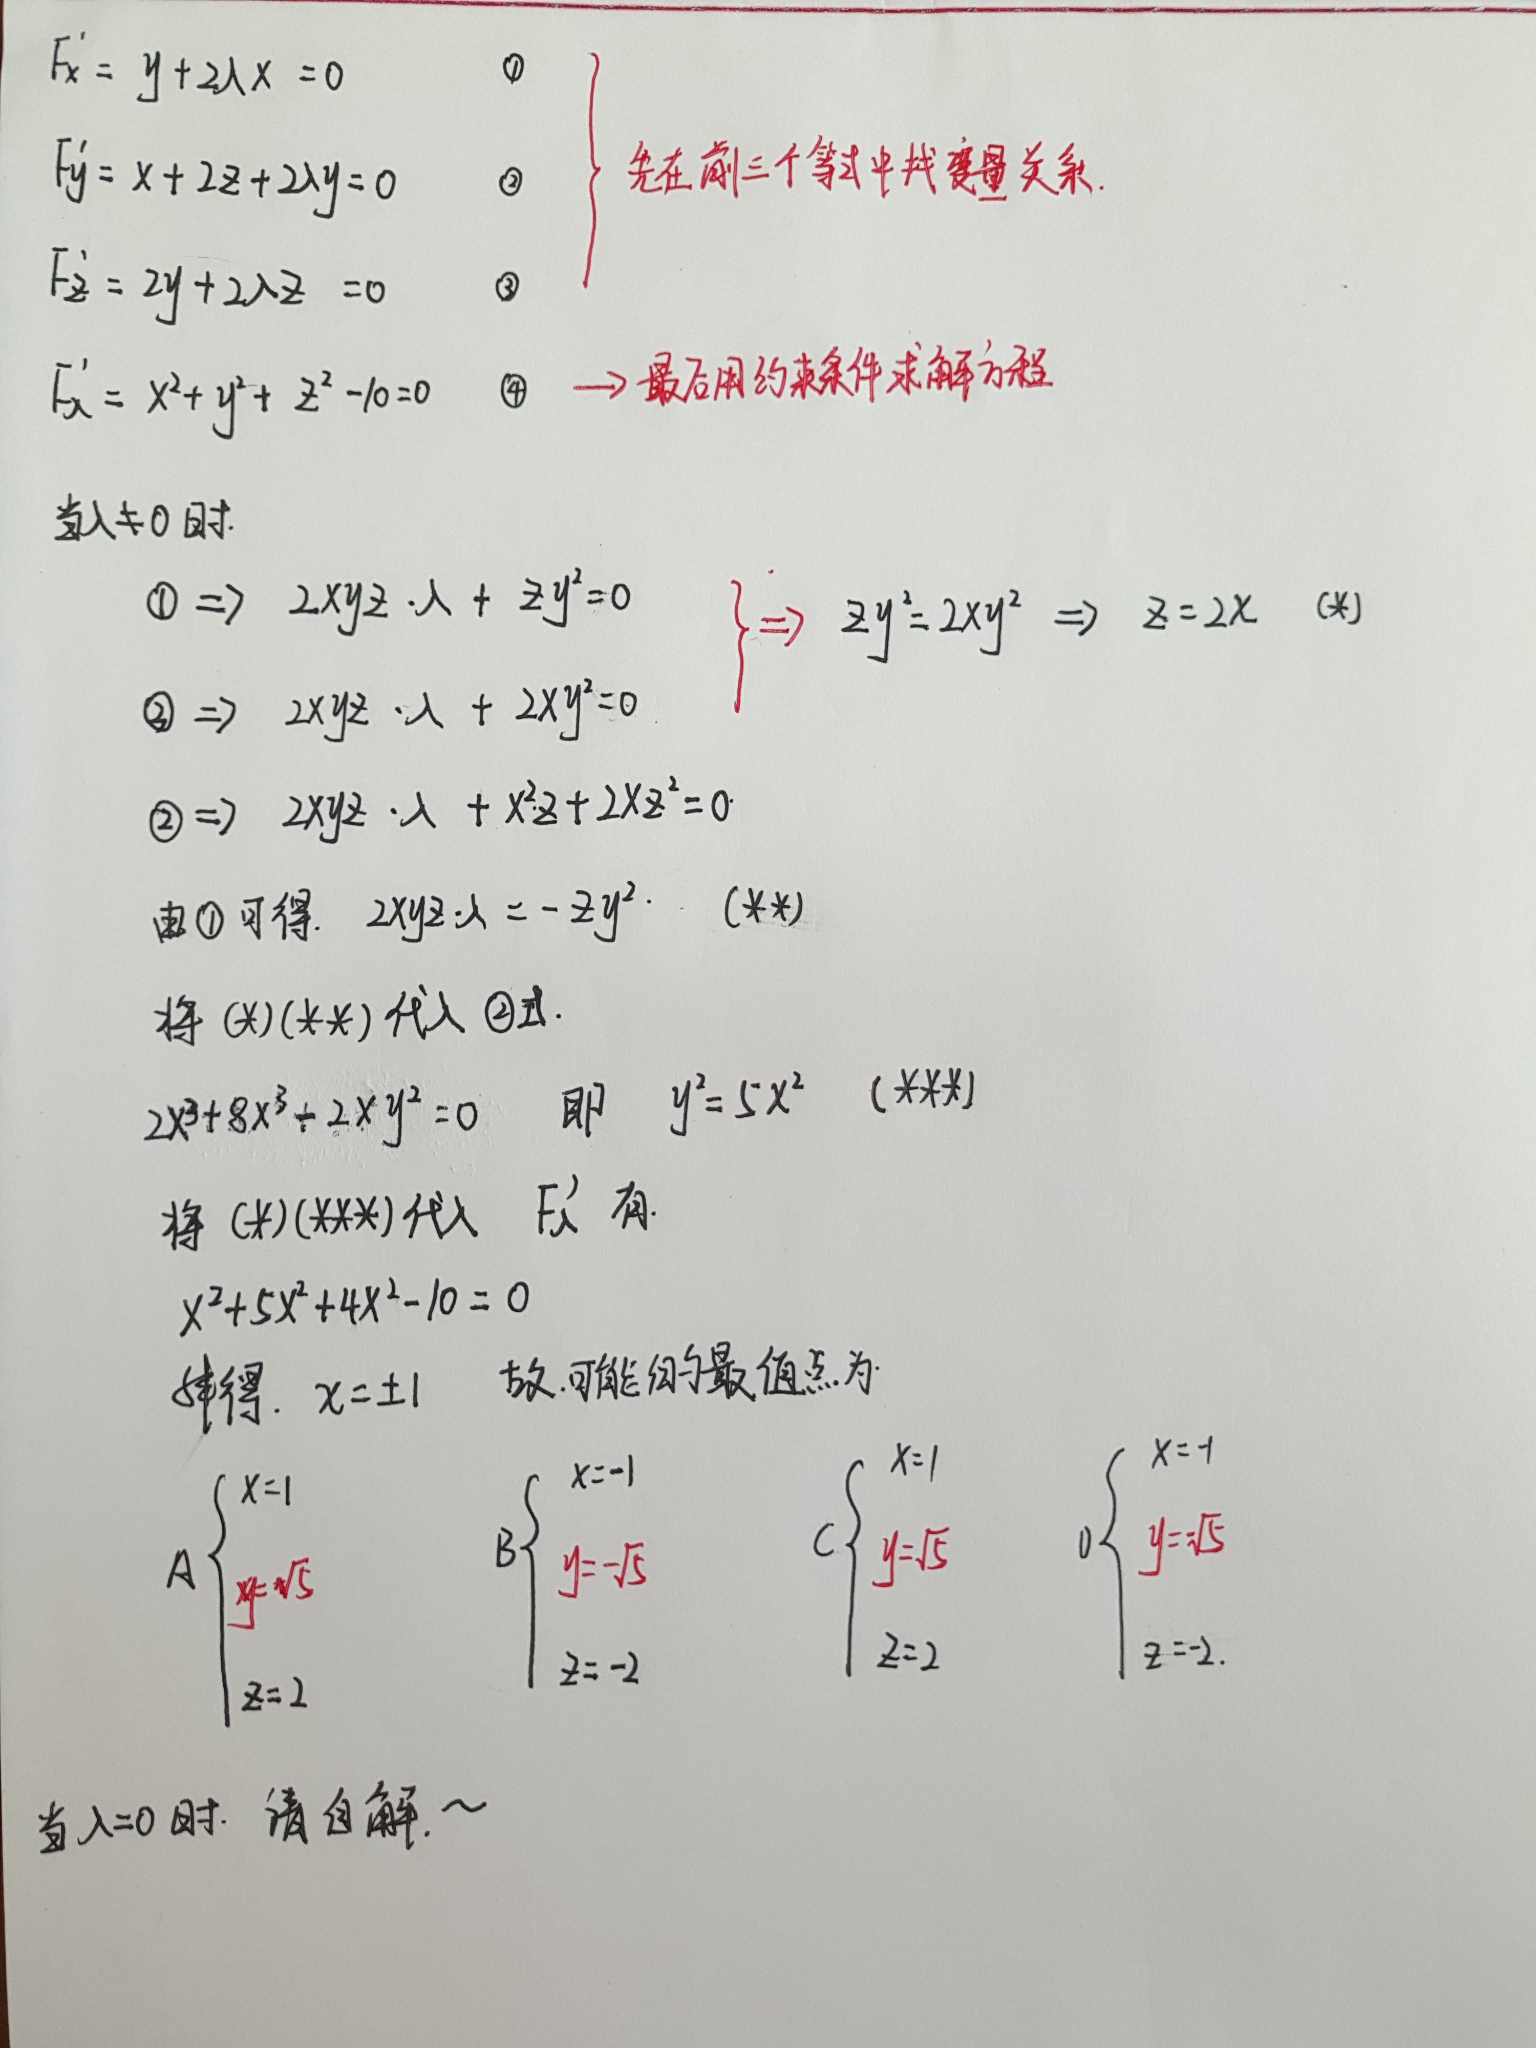 F'x = y+2λx =0 ①
F'y = x+2z+2λy=0 ② 先在前三个等式中找变量关系.
F'z = 2y+2λz =0 ③
F'λ = x²+y²+z²-10=0 ④ → 最后用约束条件求解方程
当λ≠0时.
① => 2xyz·λ + zy²=0 } => zy²=2xy² => z=2x (*)
③ => 2xyz·λ + 2xy²=0
② => 2xyz·λ + x²z+2xz²=0
由①可得. 2xyz·λ = -zy². (**)
将(*)(**)代入②式.
2x³+8x³-2xy²=0 即 y²=5x² (***)
将(*)(***)代入 F'λ 有.
x²+5x²+4x²-10=0
解得. x=±1 故.可能的最值点为.
A { x=1 y=√5 z=2 B { x=-1 y=-√5 z=-2 C { x=1 y=√5 z=2 D { x=-1 y=-√5 z=-2.
当λ=0时. 请自解.~